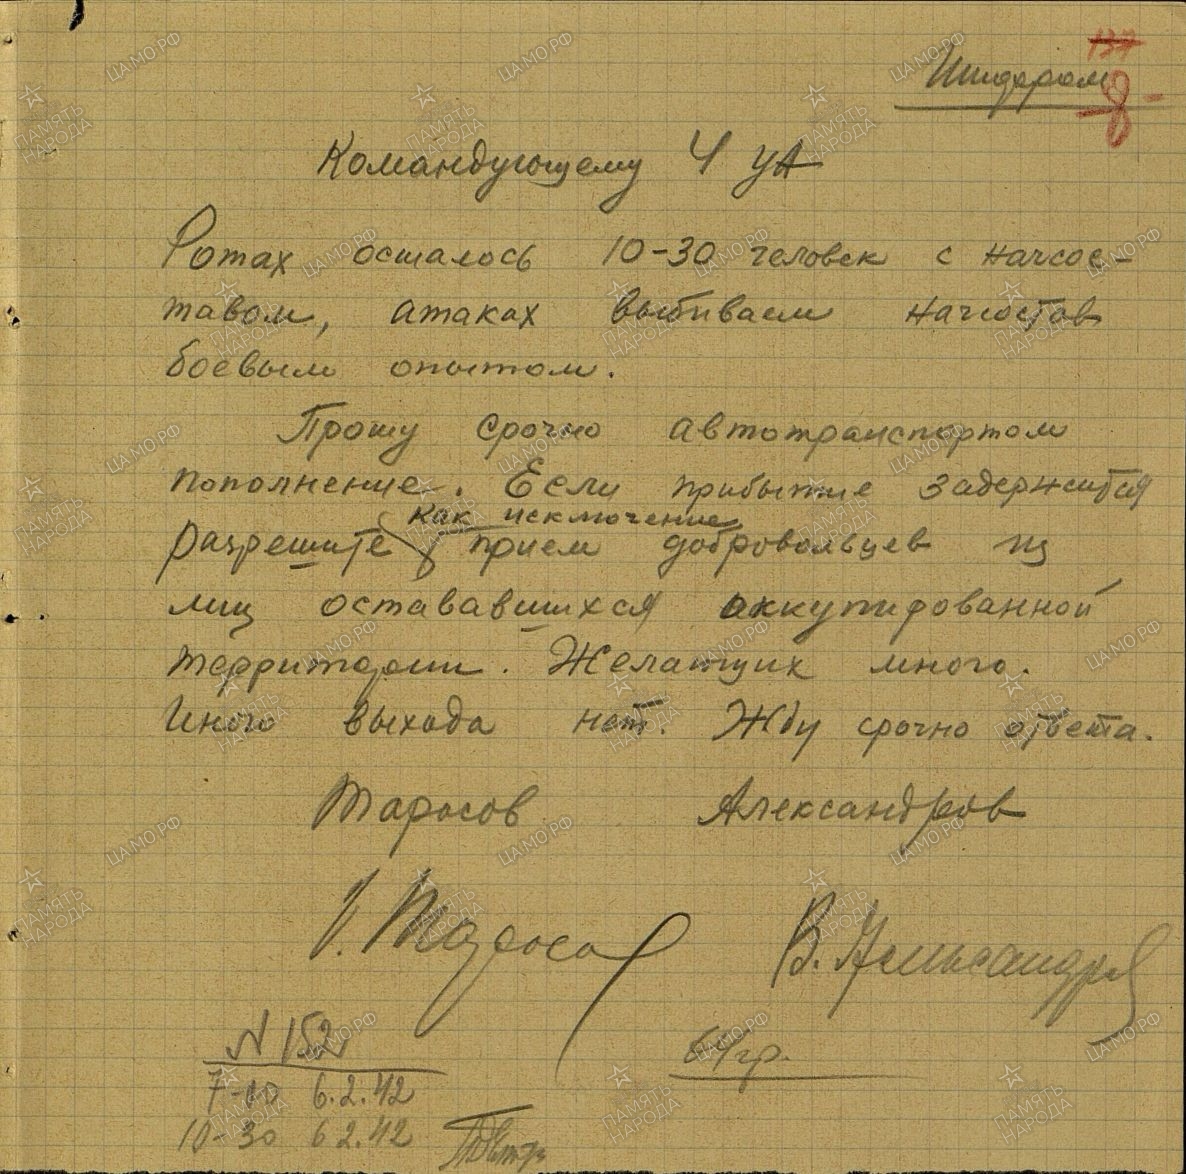 137
Шифром
8
Командующему 4 уА
Ротах осталось 10-30 человек с начсос-
тавом, атаках выбиваем начсостав
боевым опытом.
Прошу срочно автотранспортом
пополнение. Если прибытие задержится
как исключение
разрешите прием добровольцев из
лиц остававшихся оккупированной
территории. Желающих много.
Иного выхода нет. Жду срочно ответа.
Тарасов Александров
Г. Тарасов В. Александров
N 152 64 гр.
7-10 6.2.42
10-30 6 2.42